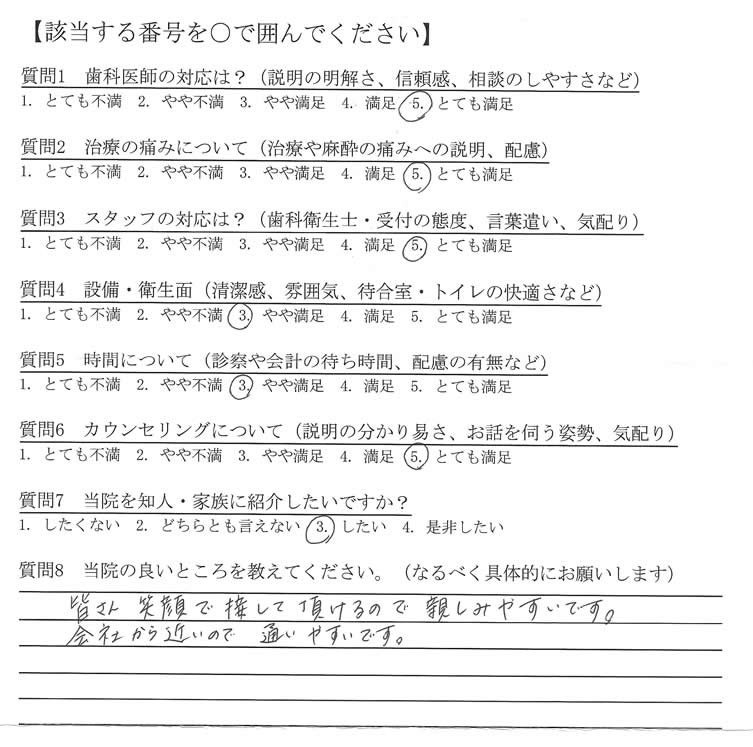 【該当する番号を○で囲んでください】
質問1　歯科医師の対応は？（説明の明解さ、信頼感、相談のしやすさなど）
1. とても不満　2. やや不満　3. やや満足　4. 満足　5. とても満足
質問2　治療の痛みについて（治療や麻酔の痛みへの説明、配慮）
1. とても不満　2. やや不満　3. やや満足　4. 満足　5. とても満足
質問3　スタッフの対応は？（歯科衛生士・受付の態度、言葉遣い、気配り）
1. とても不満　2. やや不満　3. やや満足　4. 満足　5. とても満足
質問4　設備・衛生面（清潔感、雰囲気、待合室・トイレの快適さなど）
1. とても不満　2. やや不満　3. やや満足　4. 満足　5. とても満足
質問5　時間について（診察や会計の待ち時間、配慮の有無など）
1. とても不満　2. やや不満　3. やや満足　4. 満足　5. とても満足
質問6　カウンセリングについて（説明の分かり易さ、お話を伺う姿勢、気配り）
1. とても不満　2. やや不満　3. やや満足　4. 満足　5. とても満足
質問7　当院を知人・家族に紹介したいですか？
1. したくない　2. どちらとも言えない　3. したい　4. 是非したい
質問8　当院の良いところを教えてください。（なるべく具体的にお願いします）
皆さん 笑顔で 接して 頂けるので 親しみやすいです。
会社から近いので 通いやすいです。